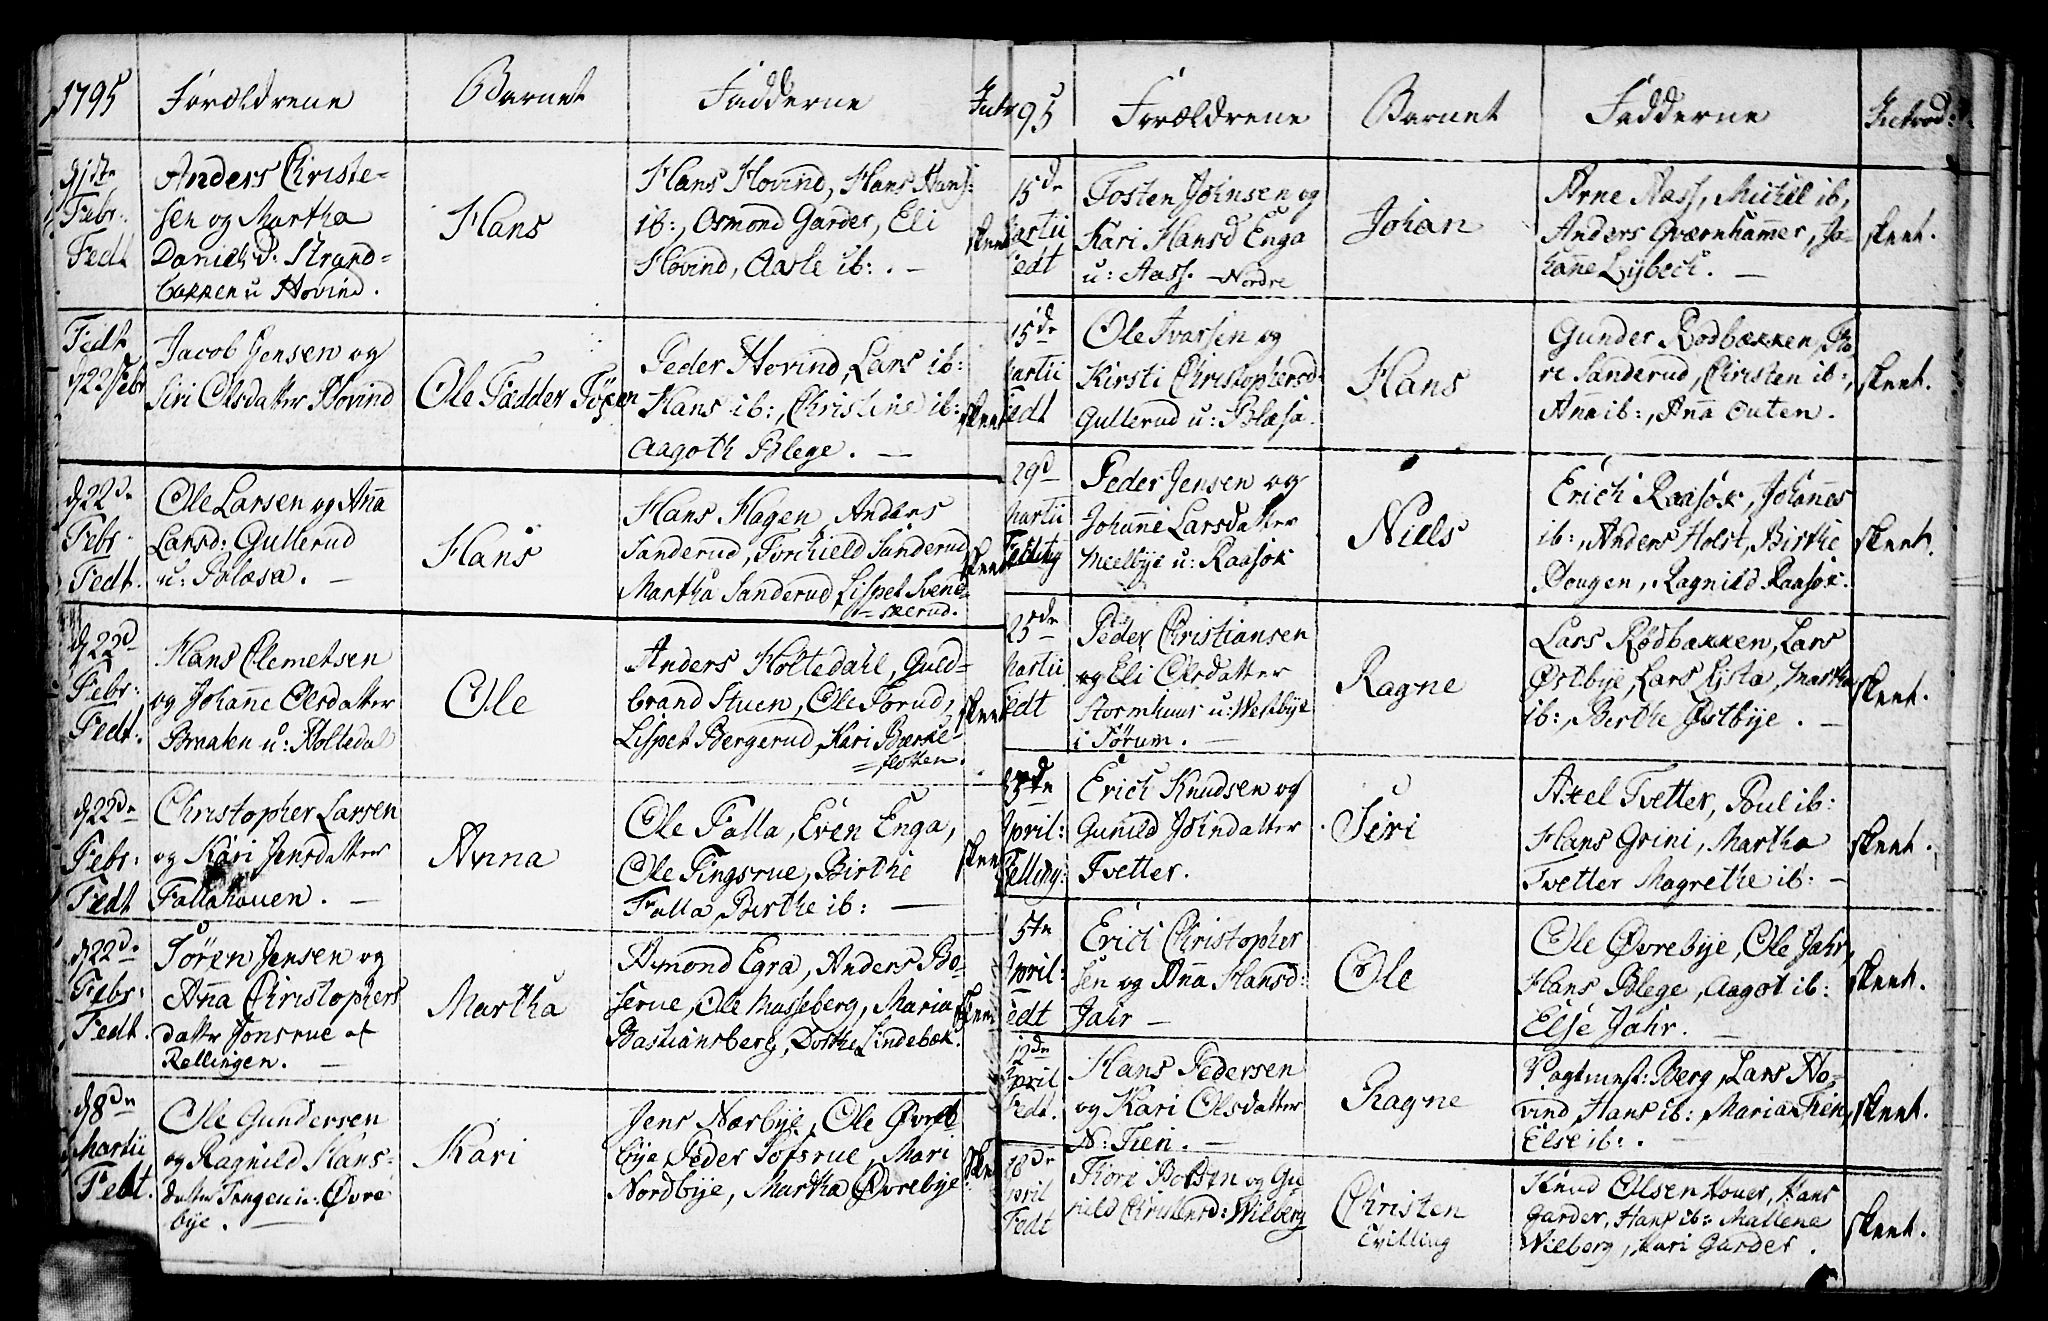 1795
Forældrene
Barnet
Fadderne
Intr
d 1ste
Febr:
Fedt
Anders Christe-
sen og Martha
Daniels D: Strand-
bakken u Hovind.
Hans
Hans Hovind, Hans Hans:
ib:, Osmond Garder, Eli
Hovind, Aasle ib: . —
skeet
Fedt
d 22 Febr
Jacob Jensen og
Siri Olsdatter Hovind
Ole Fadder
Peder Hovind, Lars ib:
Hans ib:, Christine ib:
Aagoth Blege. —
skeet
d 22de
Febr.
Fedt.
Ole Larsen og Anna
Larsd: Gullerud
u: Blæsa. —
Hans
Hans Hagen, Anders
Sanderud, Torchield Sanderud
Martha Sanderud, Lispet Svens-
skerud.
skeet
d 22d
Febr:
Fedt.
Hans Clemetsen
og Johanne Olsdatter
Braaten u: Holtedal
Ole
Anders Holtedahl, Guld-
brand Stuen, Ole Torud,
Lispet Bergerud, Kari Bierke-
=flotten.
skeet
d 22de
Febr:
Fedt
Christopher Larsen
og Kari Jensdatter
Fallahouen. —
Anna
Ole Falla, Even Enga,
Ole Tingsrue, Birthe
Falla, Berthe ib: —
skeet
d 22de
Febr:
Fedt.
Sören Jensen og
Anna Christophers
datter Jonsrue af
Rellingen. —
Martha
Amond Egra, Anders Bo-
serue, Ole Masseberg, Maria
Bastiansberg, Dorthe Lindebæk.
skeet
d 8de
Martii
Fedt.
Ole Gundersen
og Ragnild Hans-
datter Tangen u: Øvre
bye. —
Kari
Jens Næsbye, Ole Øvre
bye Peder Tofsrue, Mari
Nordbye, Martha Øvrebye
skeet
95
Forældrene
Barnet
Fadderne
Introd:
15de
Martii
Fedt
Tosten Johnsen og
Kari Hansd Enga
u: Aass. — Nordre
Johan
Arne Aass, Michel ib,
Anders Qværnhammer, Jo-
hanne Lybech. —
skeet.
15de
Martii
Fedt
Ole Ivarsen og
Kirsti Christophersd:
Gullerud u: Blæsa.
Hans
Gunder Rødbakken, To
re Sanderud, Christen ib:,
Anna ib:, Anna Outen.
skeet.
29d
Martii
Peder Jensen og
Johanne Larsdatter
Meelbye u: Raasok
Niels
Erich Raasok, Johannes
ib:, Anders Holst, Birthe
Dougen, Ragnild Raasok.
skeet.
25de
Martii
Fedt
Peder Christiansen
og Eli Olsdatter
Stormhuus u: Westbye
i Sørum. —
Ragne
Lars Rødbakken, Lars
Østbye, Lars Lysta, Martha
ib:, Berthe Østbye. —
skeet.
April:
Felling:
Erich Knudsen og
Gunild Johndatter
Tvetter.
Siri
Axel Tvetter, Poul ib:
Hans Grini, Martha
Tvetter Magrethe ib: —
skeet.
5te
April:
Fedt
Erich Christopher
sen og Anna Hansd:
Jahr —
Ole
Ole Øvrebye, Ole Jahr,
Hans Blege, Aagot ib:
Else Jahr. —
skeet.
12de
April
Fedt.
Hans Pedersen
og Kari Olsdatter
N: Fien. —
Ragne
Vagtmest: Berg, Lars Ho-
vind, Hans ib: Maria Fien,
Else ib:. —
skeet.
18de
April
Fedt
Tore Boesen og Gu
nild Christensd: Wilberg
Christen
Tvilling
Knud Olsen Houer, Hans
Garder, Hans ib: Mallene
Wilberg, Kari Garder.
skeet.